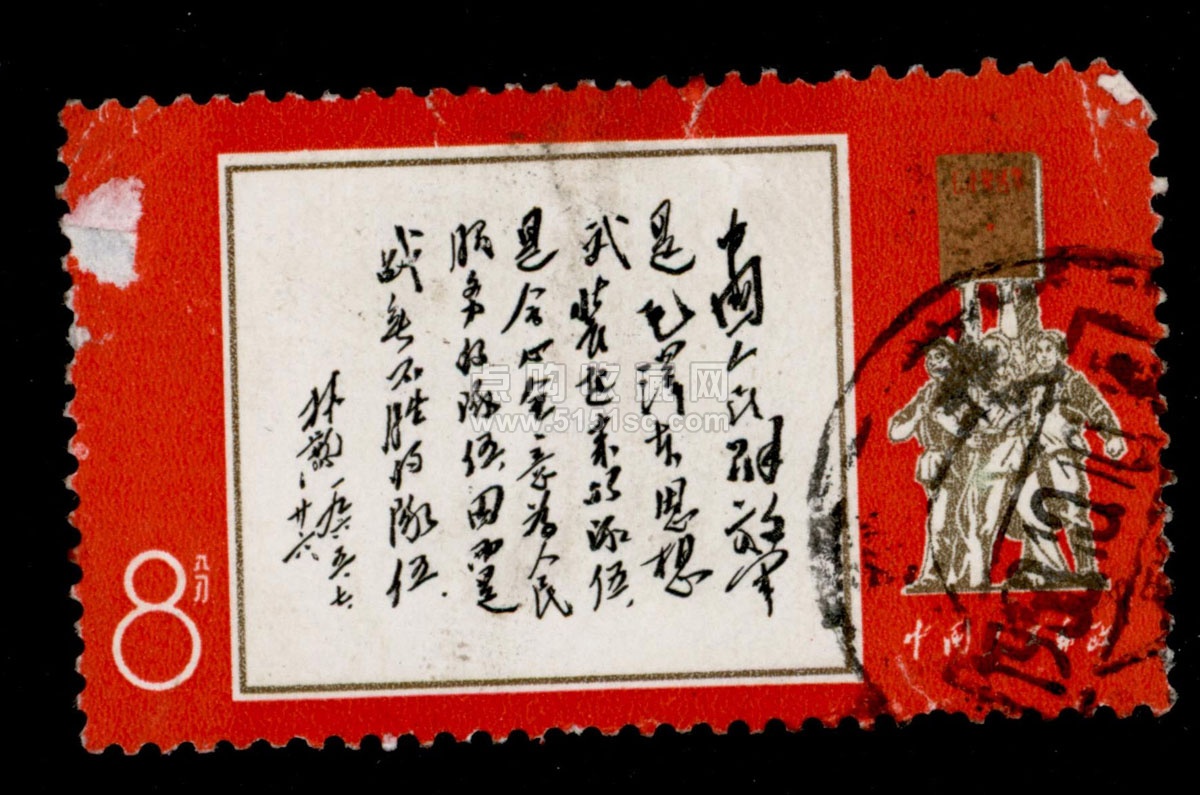 中国人民解放军
是毛泽东思想
武装起来的队伍，
是全心全意为人民
服务的队伍，因而是
战无不胜的队伍．
林彪 一九六五、七、
廿六
8
八分
中国人民邮政
点购收藏网
www.5151sc.com